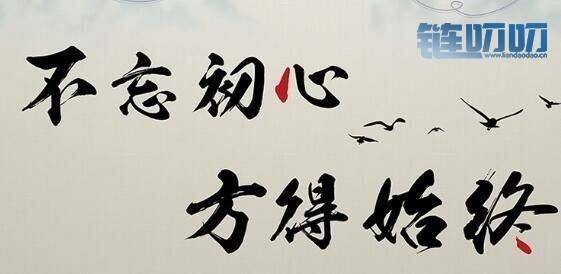 链叨叨
www.liandaodao.cn
不忘初心
方得始终